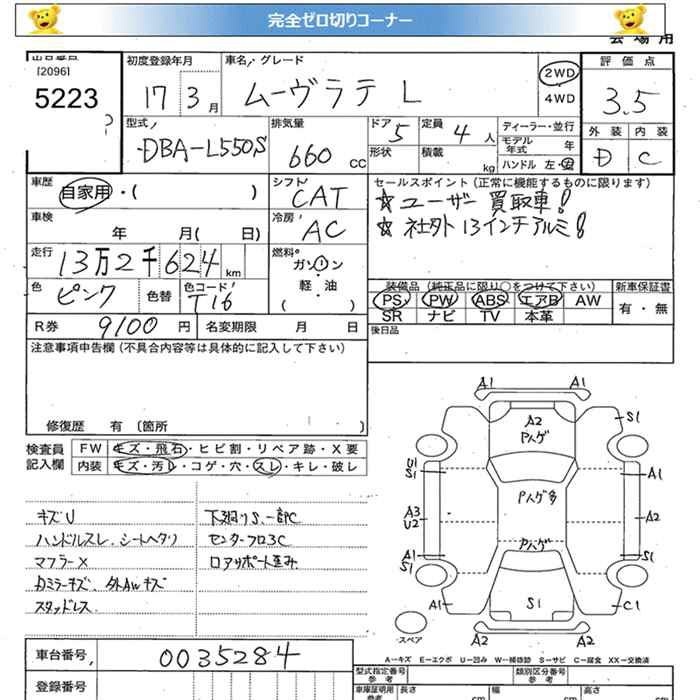 完全ゼロ切りコーナー
会場用
出品番号
[2096]
5223
初度登録年月
17 3月
車名、グレード
ムーヴラテ L
2WD
4WD
評価点
3.5
外装 内装
D C
型式
DBA-L550S
排気量
660 CC
ドア 5
形状
定員 4人
積載 kg
ディーラー・並行
モデル年式 年
ハンドル 左・右
車歴
自家用・( )
シフト
CAT
セールスポイント (正常に機能するものに限ります)
☆ユーザー買取車!
☆社外13インチアルミ!
車検
年 月( 日)
冷房
AC
走行
13万2千624km
燃料
ガソリン
軽・油
( )
色
ピンク
色替
色コード
T16
装備品 (純正品に限り○をつけて下さい)
PS PW ABS エアB AW
SR ナビ TV 本革
新車保証書
有・無
R券 9100円
名変期限 月 日
後日品
注意事項申告欄 (不具合内容等は具体的に記入して下さい)
修復歴 有 〔箇所 〕
検査員記入欄
FW キズ・飛石・ヒビ割・リペア跡・X要
内装 キズ・汚レ・コゲ・穴・スレ・キレ・破レ
キズU
ハンドルスレ、シートヘタリ
マフラーX
ドアミラーキズ、外AWキズ
スタッドレス
下廻りS、一部C
センターフロ3C
ロアサポート歪み
A1 A1
A2
Pハゲ
S1
U1
S1
A1
Pハゲ多
A3
U2
A2
Pハゲ
A1
S1
S1
A1
S1
C1
A2 A2
スペア
A-キズ E-エクボ U-凹み W-補修跡 S-サビ C-腐食 XX-交換済
車台番号
0035284
登録番号
型式指定番号
参考
類別区分番号
参考
車庫証明用
参考
長さ cm
幅 cm
高さ cm